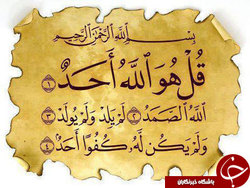 بِسْمِ اللَّهِ الرَّحْمَٰنِ الرَّحِيمِ
قُلْ هُوَ اللَّهُ أَحَدٌ ١
اللَّهُ الصَّمَدُ ٢ لَمْ يَلِدْ وَلَمْ يُولَدْ ٣
وَلَمْ يَكُن لَّهُ كُفُوًا أَحَدٌ ٤
باشگاه خبرنگاران